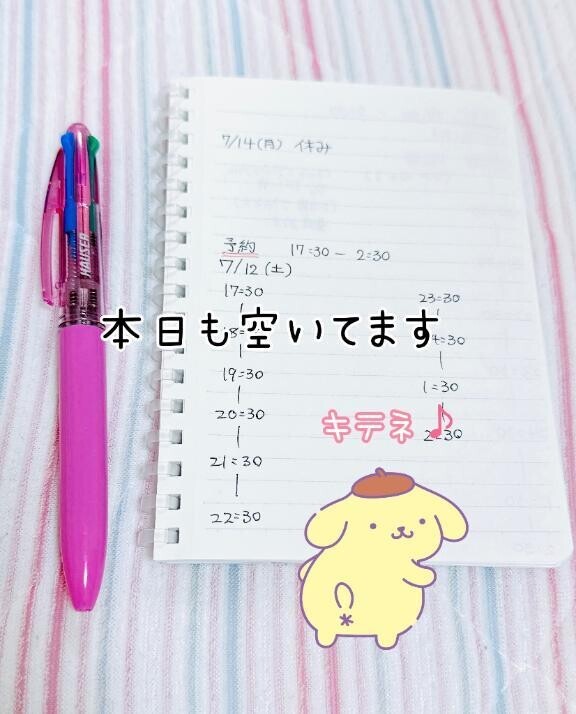 7/14(月) 休み
予約 17:30 - 2:30
7/12(土)
17:30
19:30
20:30
21:30
22:30
23:30
1:30
2:30
本日も空いてます
キテネ♪
HAUSER